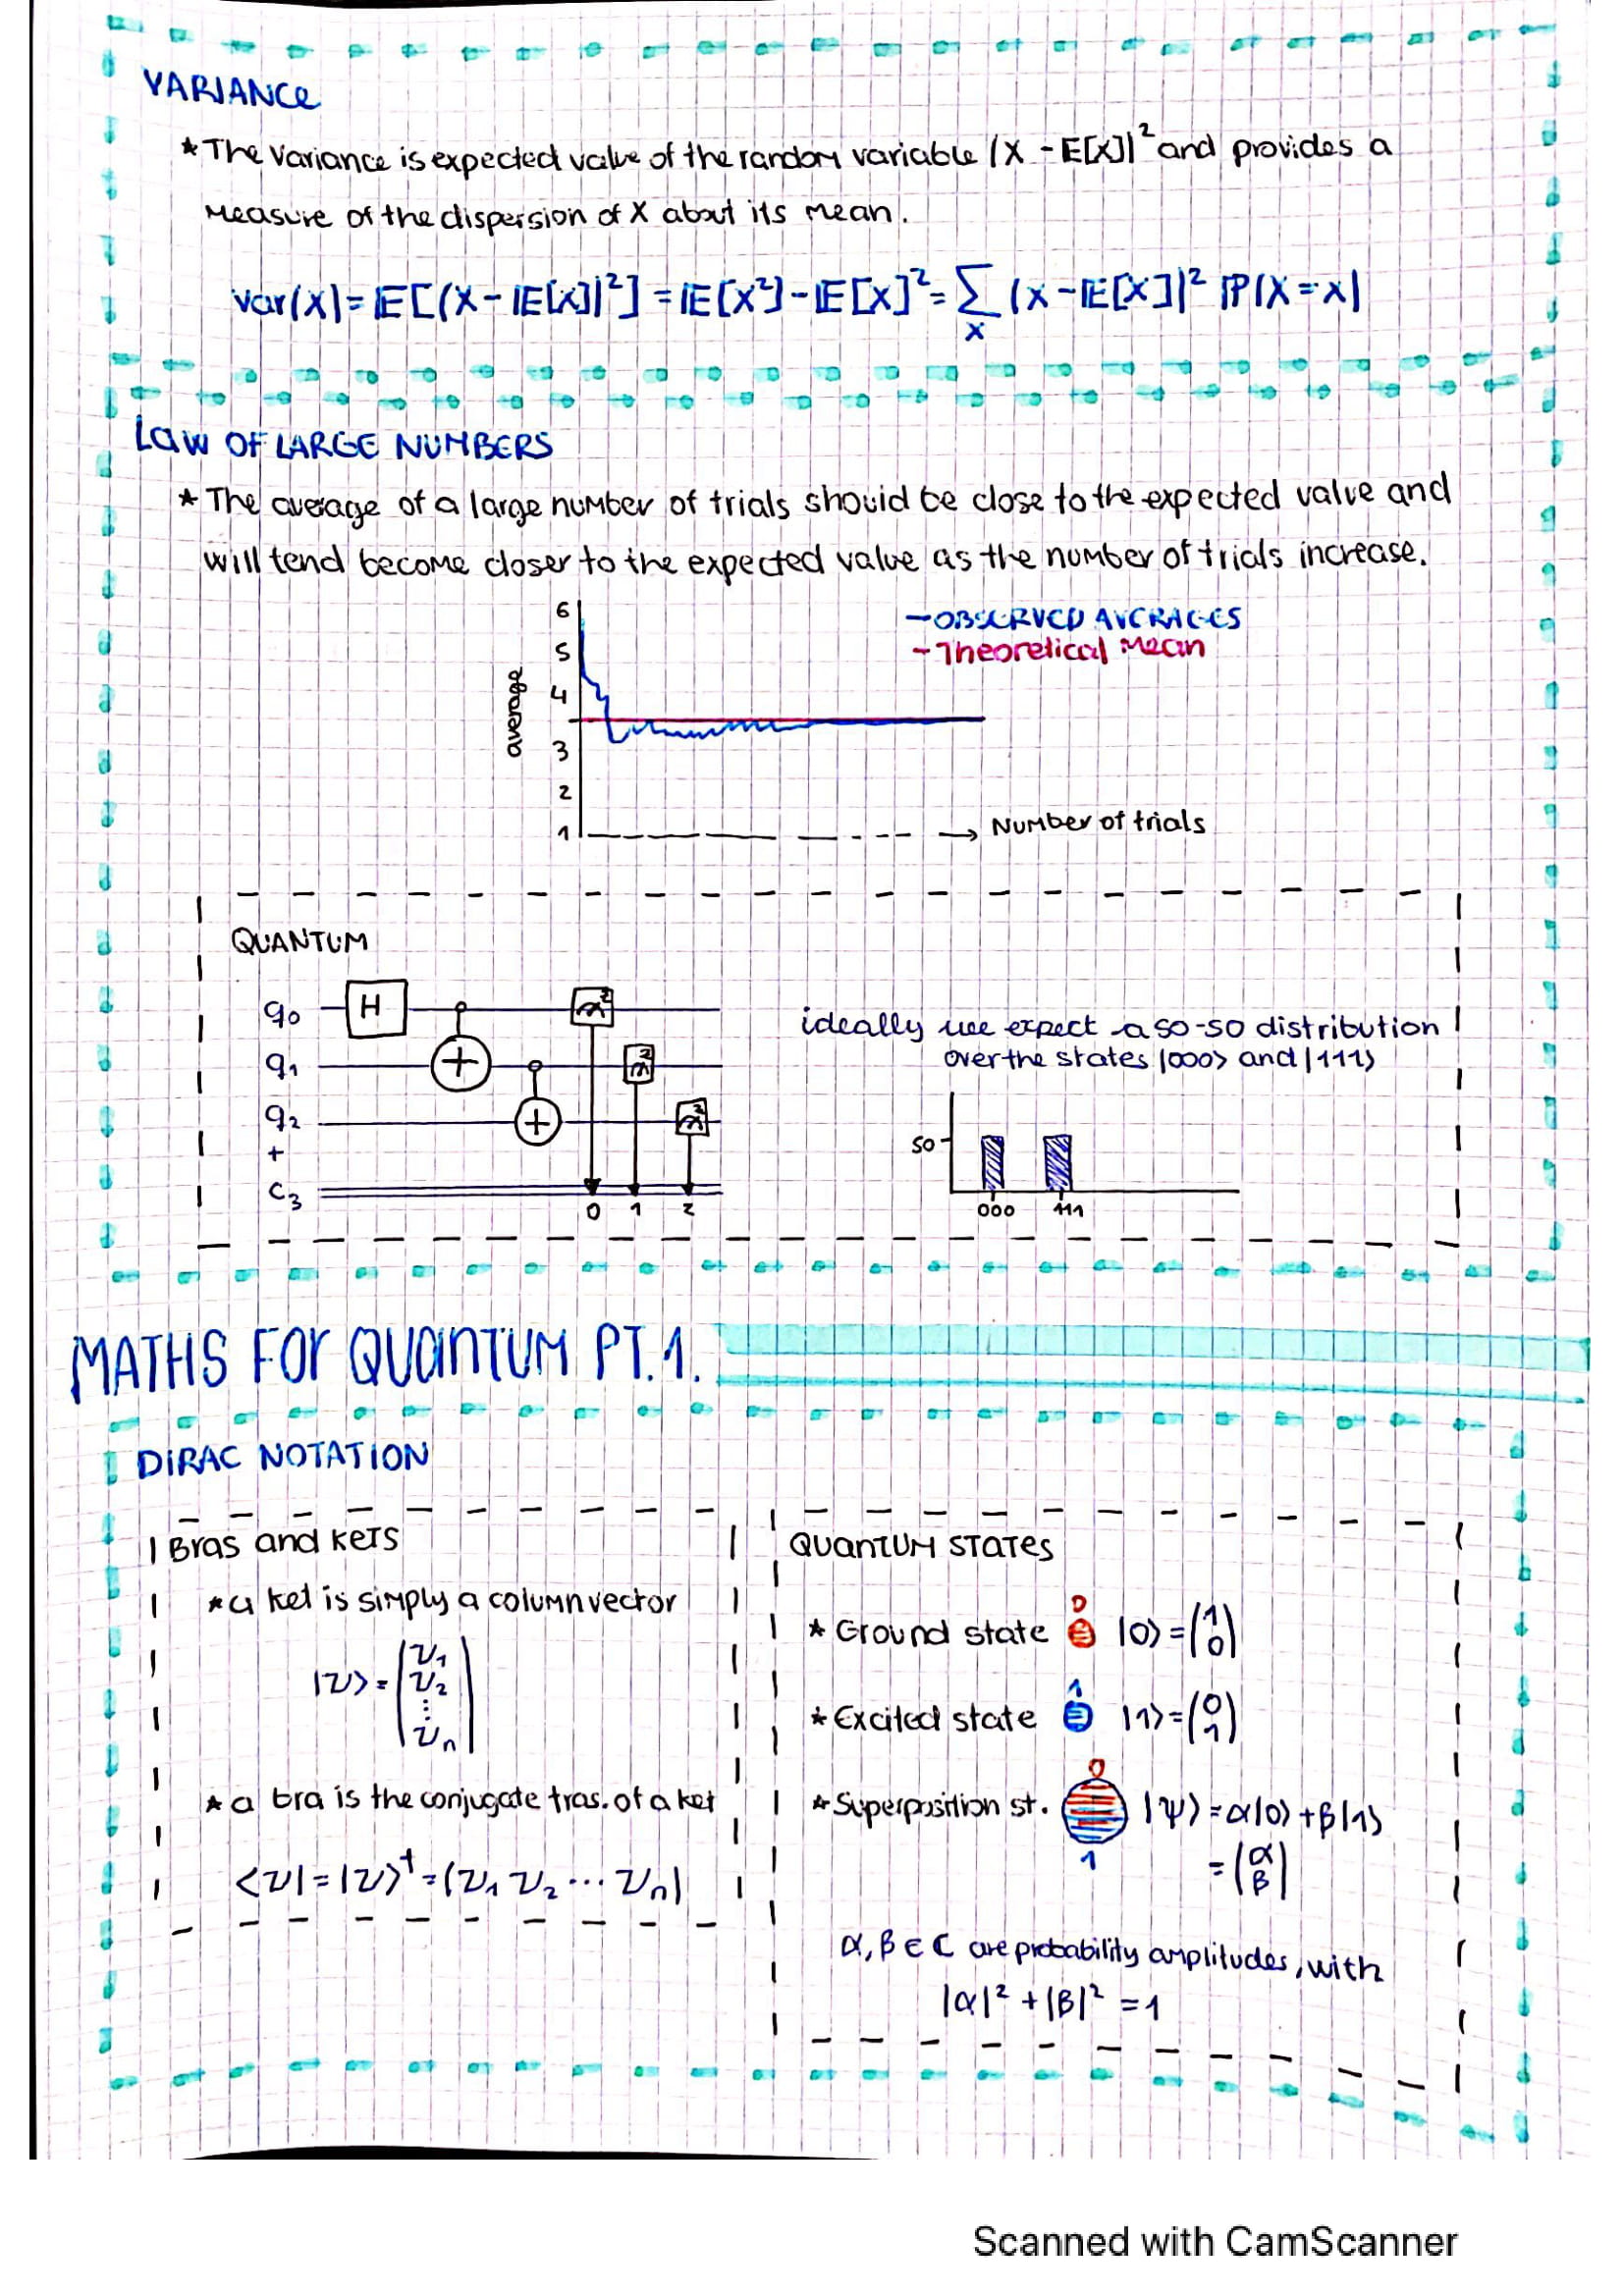 VARIANCE
* The variance is expected value of the random variable (X - E[X])² and provides a
measure of the dispersion of X about its mean.
Var(X) = 𝔼[(X - 𝔼[X])²] = 𝔼[X²] - 𝔼[X]² = ∑ (x - 𝔼[X])² ℙ(X = x)
x
LAW OF LARGE NUMBERS
* The average of a large number of trials should be close to the expected value and
will tend become closer to the expected value as the number of trials increase.
6
5
4
3
2
1
average
- OBSERVED AVERAGES
- Theoretical Mean
Number of trials
QUANTUM
q₀ H
q₁
q₂
+
c₃
0 1 2
ideally we expect a 50-50 distribution
over the states |000> and |111>
50
000 111
MATHS FOR QUANTUM PT.1.
DIRAC NOTATION
Bras and kets
* a ket is simply a column vector
|v> = (v₁
v₂
⋮
vₙ)
* a bra is the conjugate tras. of a ket
<v| = |v>† = (v₁ v₂ ... vₙ)
QUANTUM STATES
0
* Ground state |0> = (1 0)
1
* Excited state |1> = (0 1)
0
* Superposition st. |ψ> = α|0> + β|1>
1
= (α β)
α, β ∈ C are probability amplitudes, with
|α|² + |β|² = 1
Scanned with CamScanner